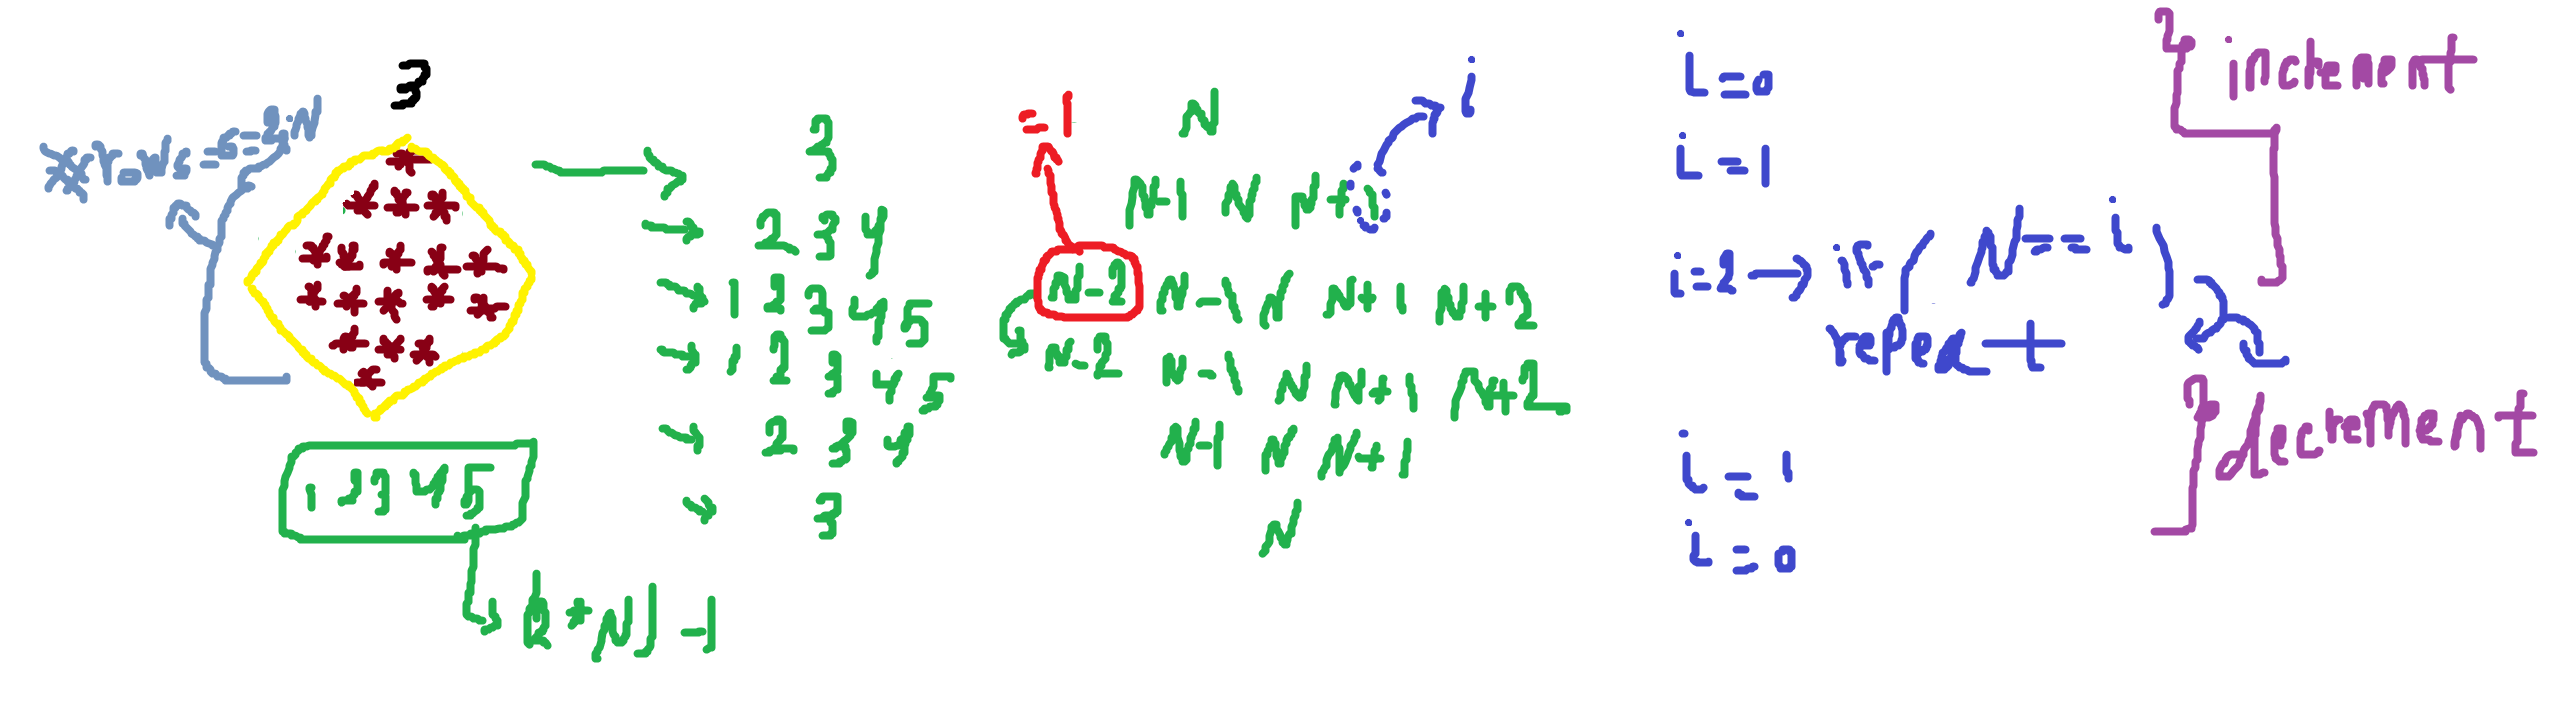 3
* rows = 6 = 2N
*
* * *
* * * * *
* * * * *
* * *
*
1 2 3 4 5
(2 * N) - 1
3
2 3 4
1 2 3 4 5
1 2 3 4 5
2 3 4
3
= 1
N
N-1 N N+1
N-2 N-1 N N+1 N+2
N-2 N-1 N N+1 N+2
N-1 N N+1
N
i
i = 0
i = 1
i = 2 → if ( N == i )
repeat
i = 1
i = 0
increment
decrement